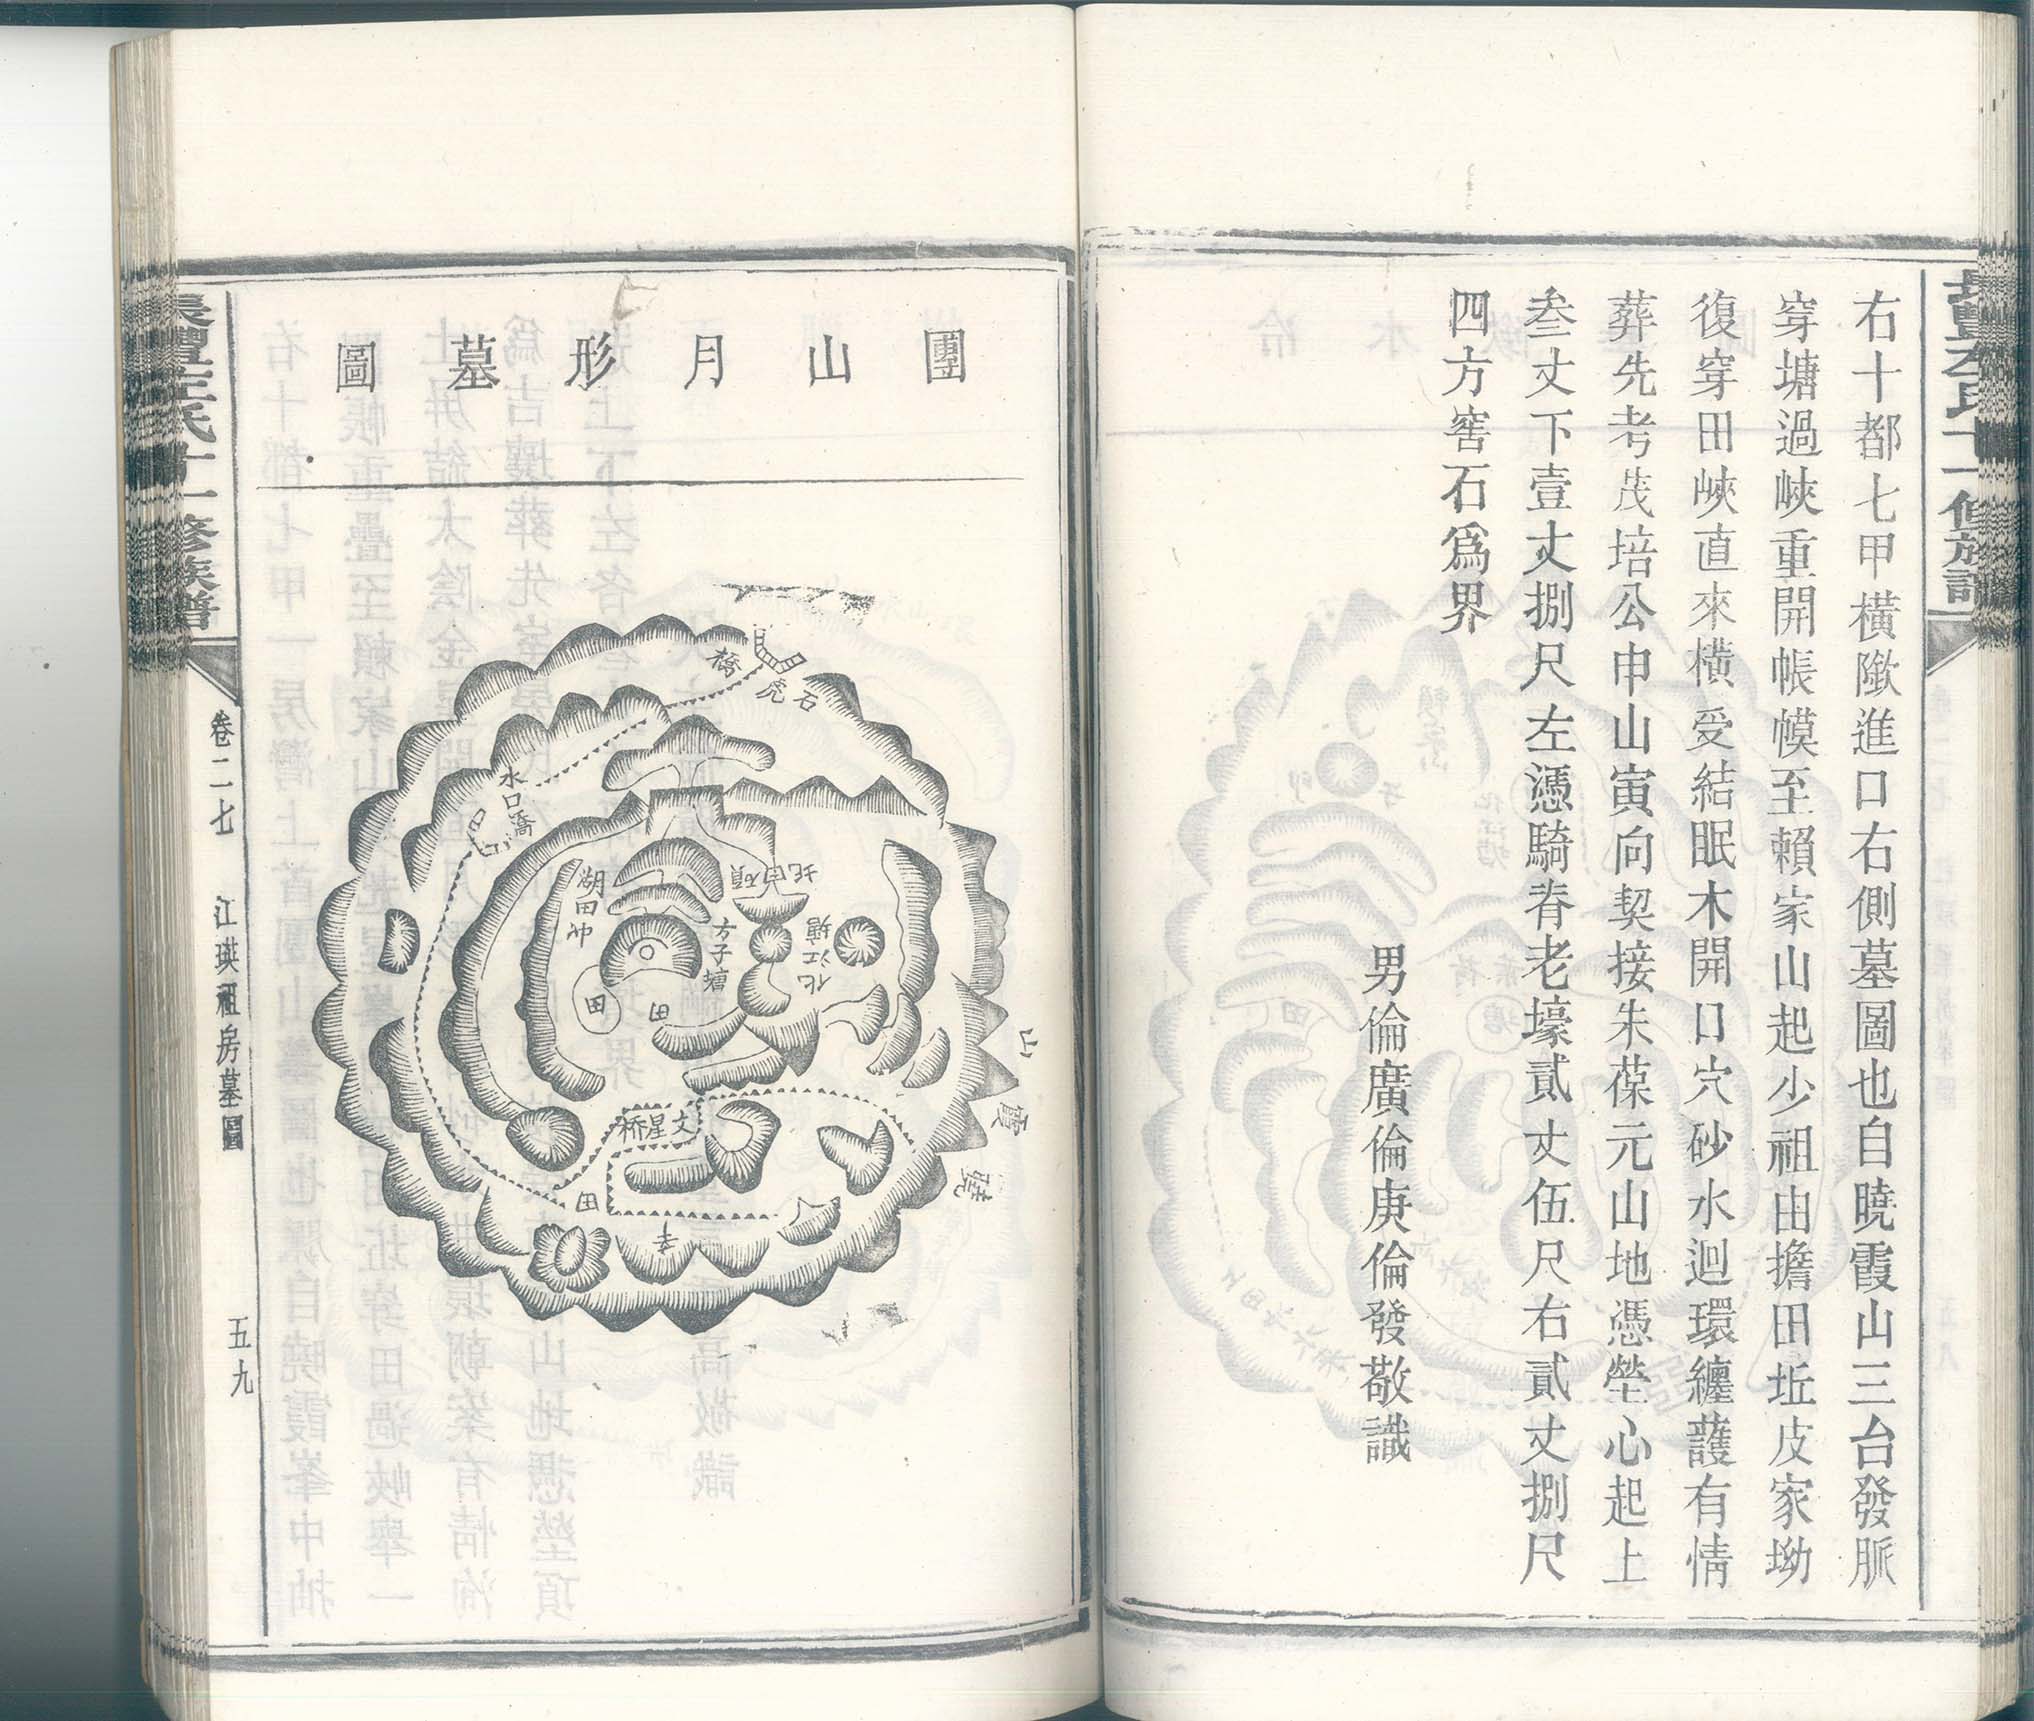 右十都七甲橫隞進口右側墓圖也自曉霞山三台發脈
穿塘過峽重開帳幙至賴家山起少祖由擔田坵皮家坳
復穿田峽直來橫受結眠木開口穴砂水迴環纏護有情
葬先考茂培公申山寅向契接朱葆元山地憑塋心起上
叁丈下壹丈捌尺左憑騎脊老壕貳丈伍尺右貳丈捌尺
四方窖石爲界
男倫廣倫庚倫發敬識
團山月形墓圖
橋
石虎
水口橋
湖田冲
方子塘
化江塘
田
田
文星桥
田
寺
曉霞山
氏十一修族譜
卷二七
江珙祖房墓圖
五九